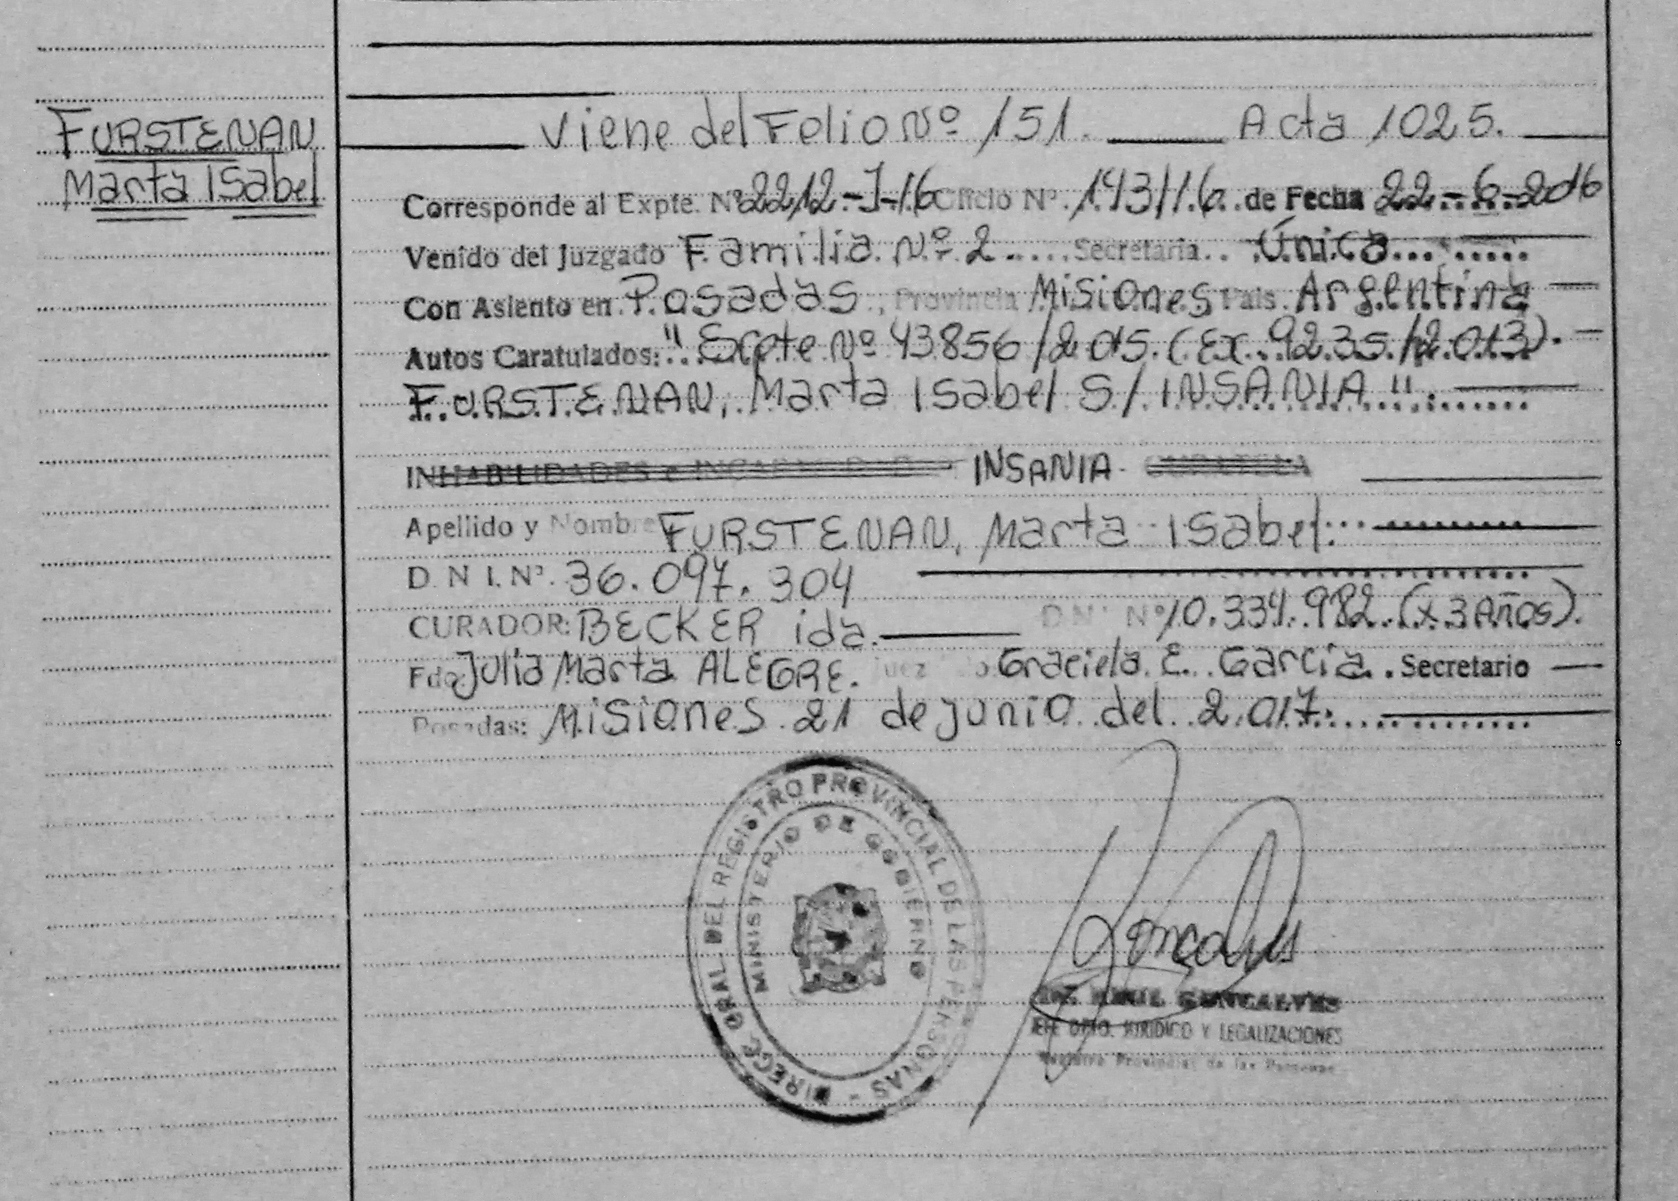 FURSTENAN
Marta ISabel
Viene del Folio Nº 151. Acta 1025.
Corresponde al Expte. Nº 2212-I-16 Oficio Nº. 143/16. de Fecha 22-6-2016
Venido del Juzgado Familia Nº 2.... Secretaria.. Única...
Con Asiento en Posadas, Provincia Misiones País. Argentina
Autos Caratulados: "Expte Nº 43856/2015. (Ex. 9235/2.013).
FURSTENAN, Marta ISabel S/ INSANIA".
INHABILIDADES e INSANIA. CURATELA
Apellido y Nombre FURSTENAN, Marta ISabel.
D N I. Nº. 36.097.304
CURADOR: BECKER ida. D.N.I Nº 10.334.982. (x 3 Años).
Fdo: Julia Marta ALEGRE. Juez Graciela E. García. Secretario
Posadas: Misiones 21 de junio del 2.017.
DIREC. GRAL. DEL REGISTRO PROVINCIAL DE LAS PERSONAS -
MINISTERIO DE GOBIERNO
Goncalves
GONCALVES
JEFE DPTO. JURIDICO Y LEGALIZACIONES
Registro Provincial de las Personas